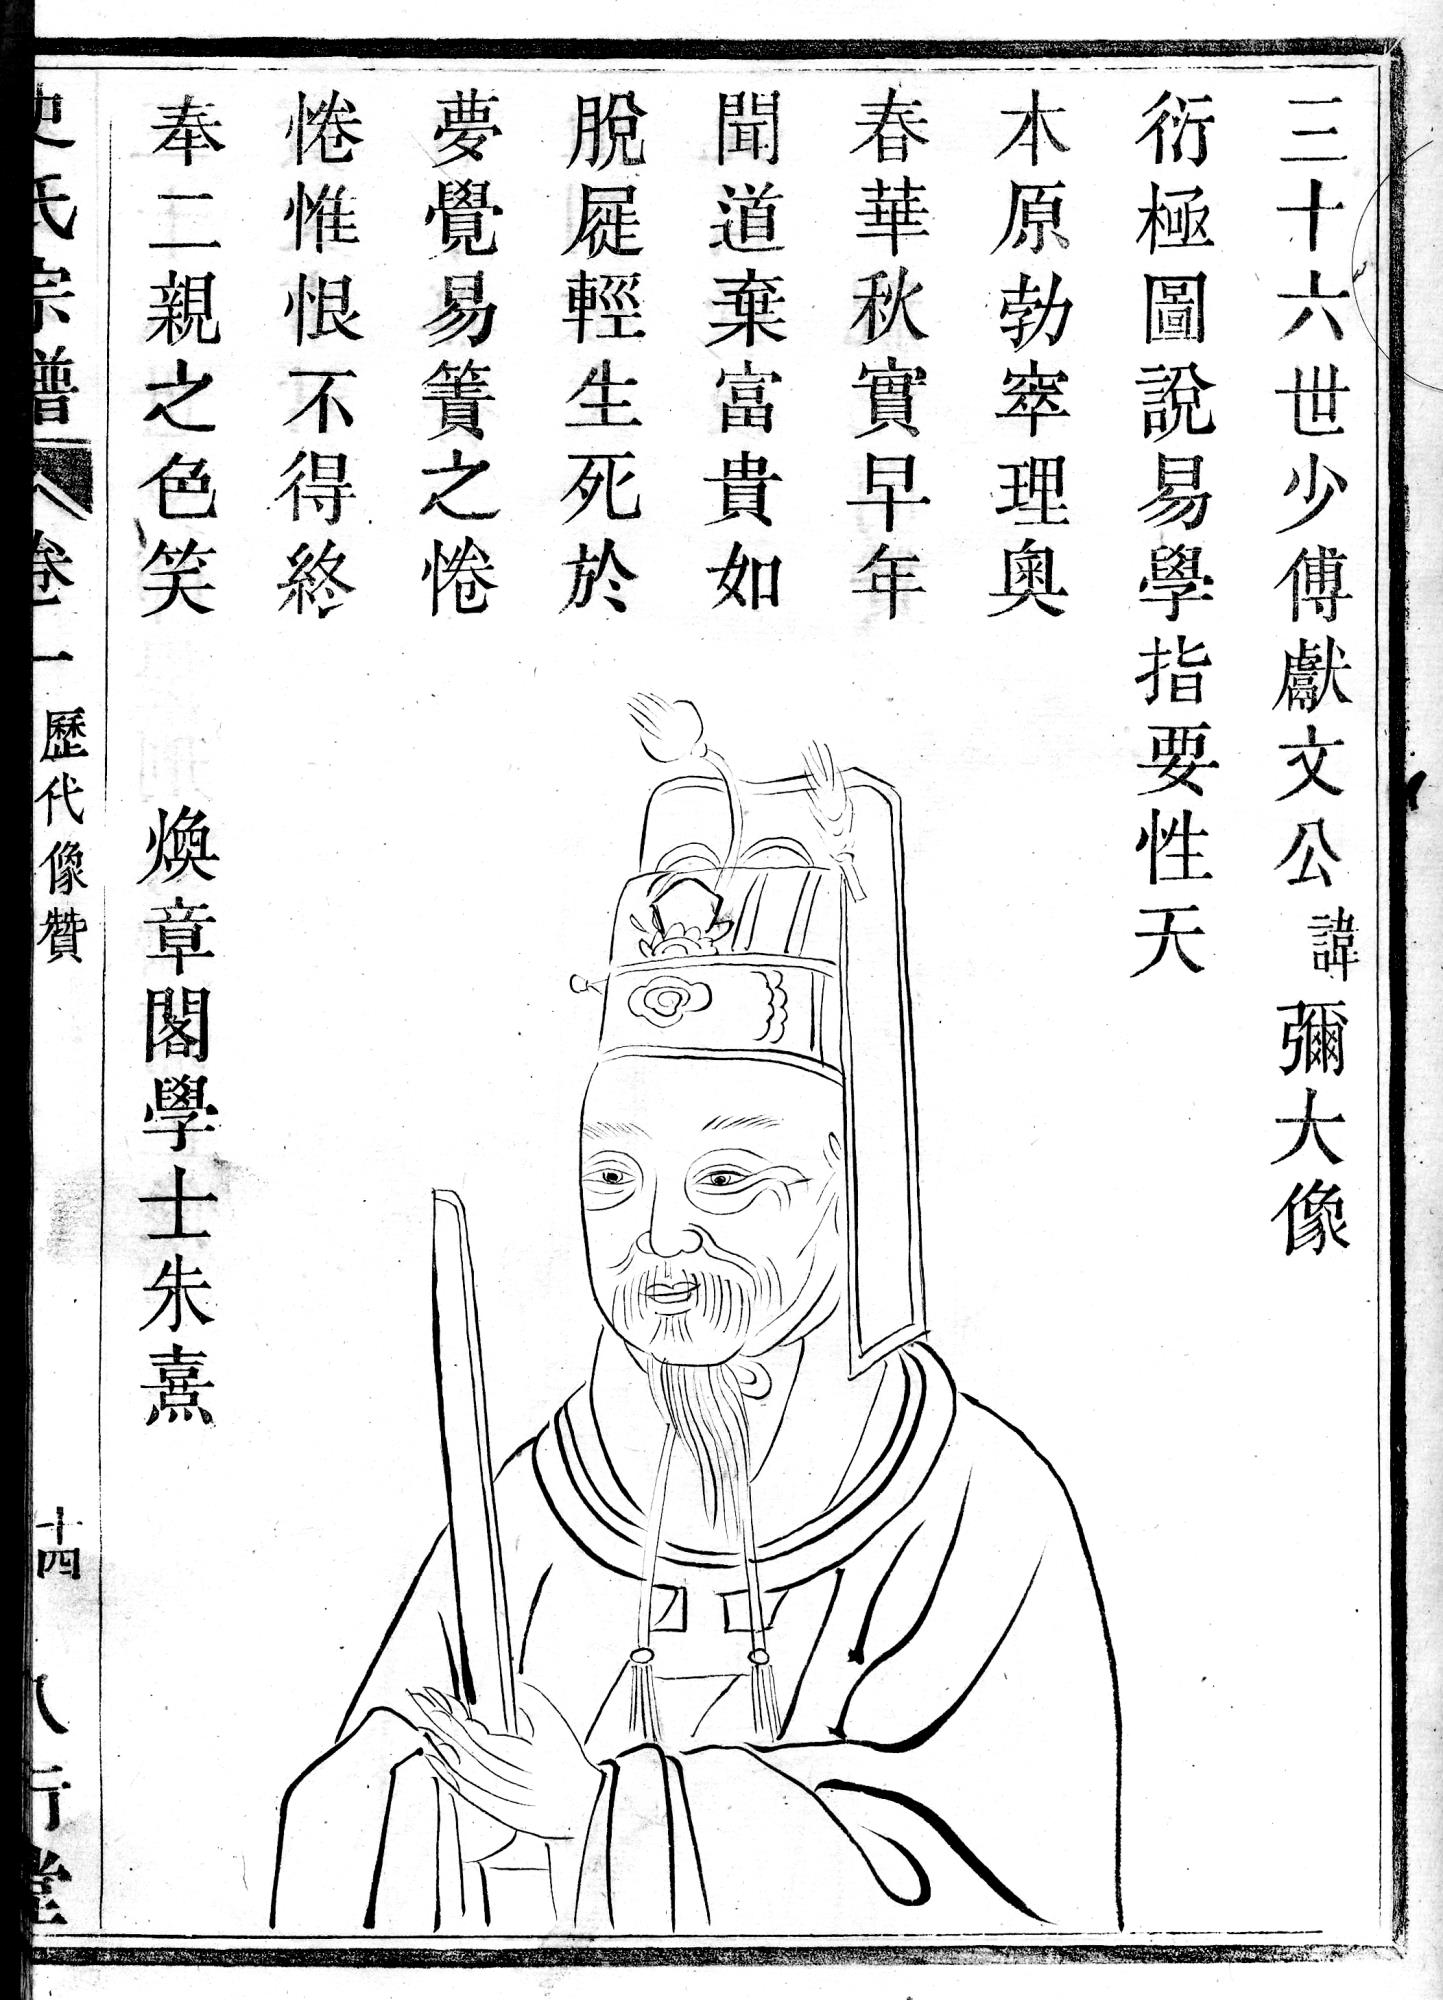 三十六世少傅獻文公諱彌大像
衍極圖說易學指要性天
本原勃窣理奧
春華秋實早年
聞道棄富貴如
脫屣輕生死於
夢覺易簀之惓
惓惟恨不得終
奉二親之色笑
煥章閣學士朱熹
史氏宗譜 卷一 歷代像贊 十四 八行堂